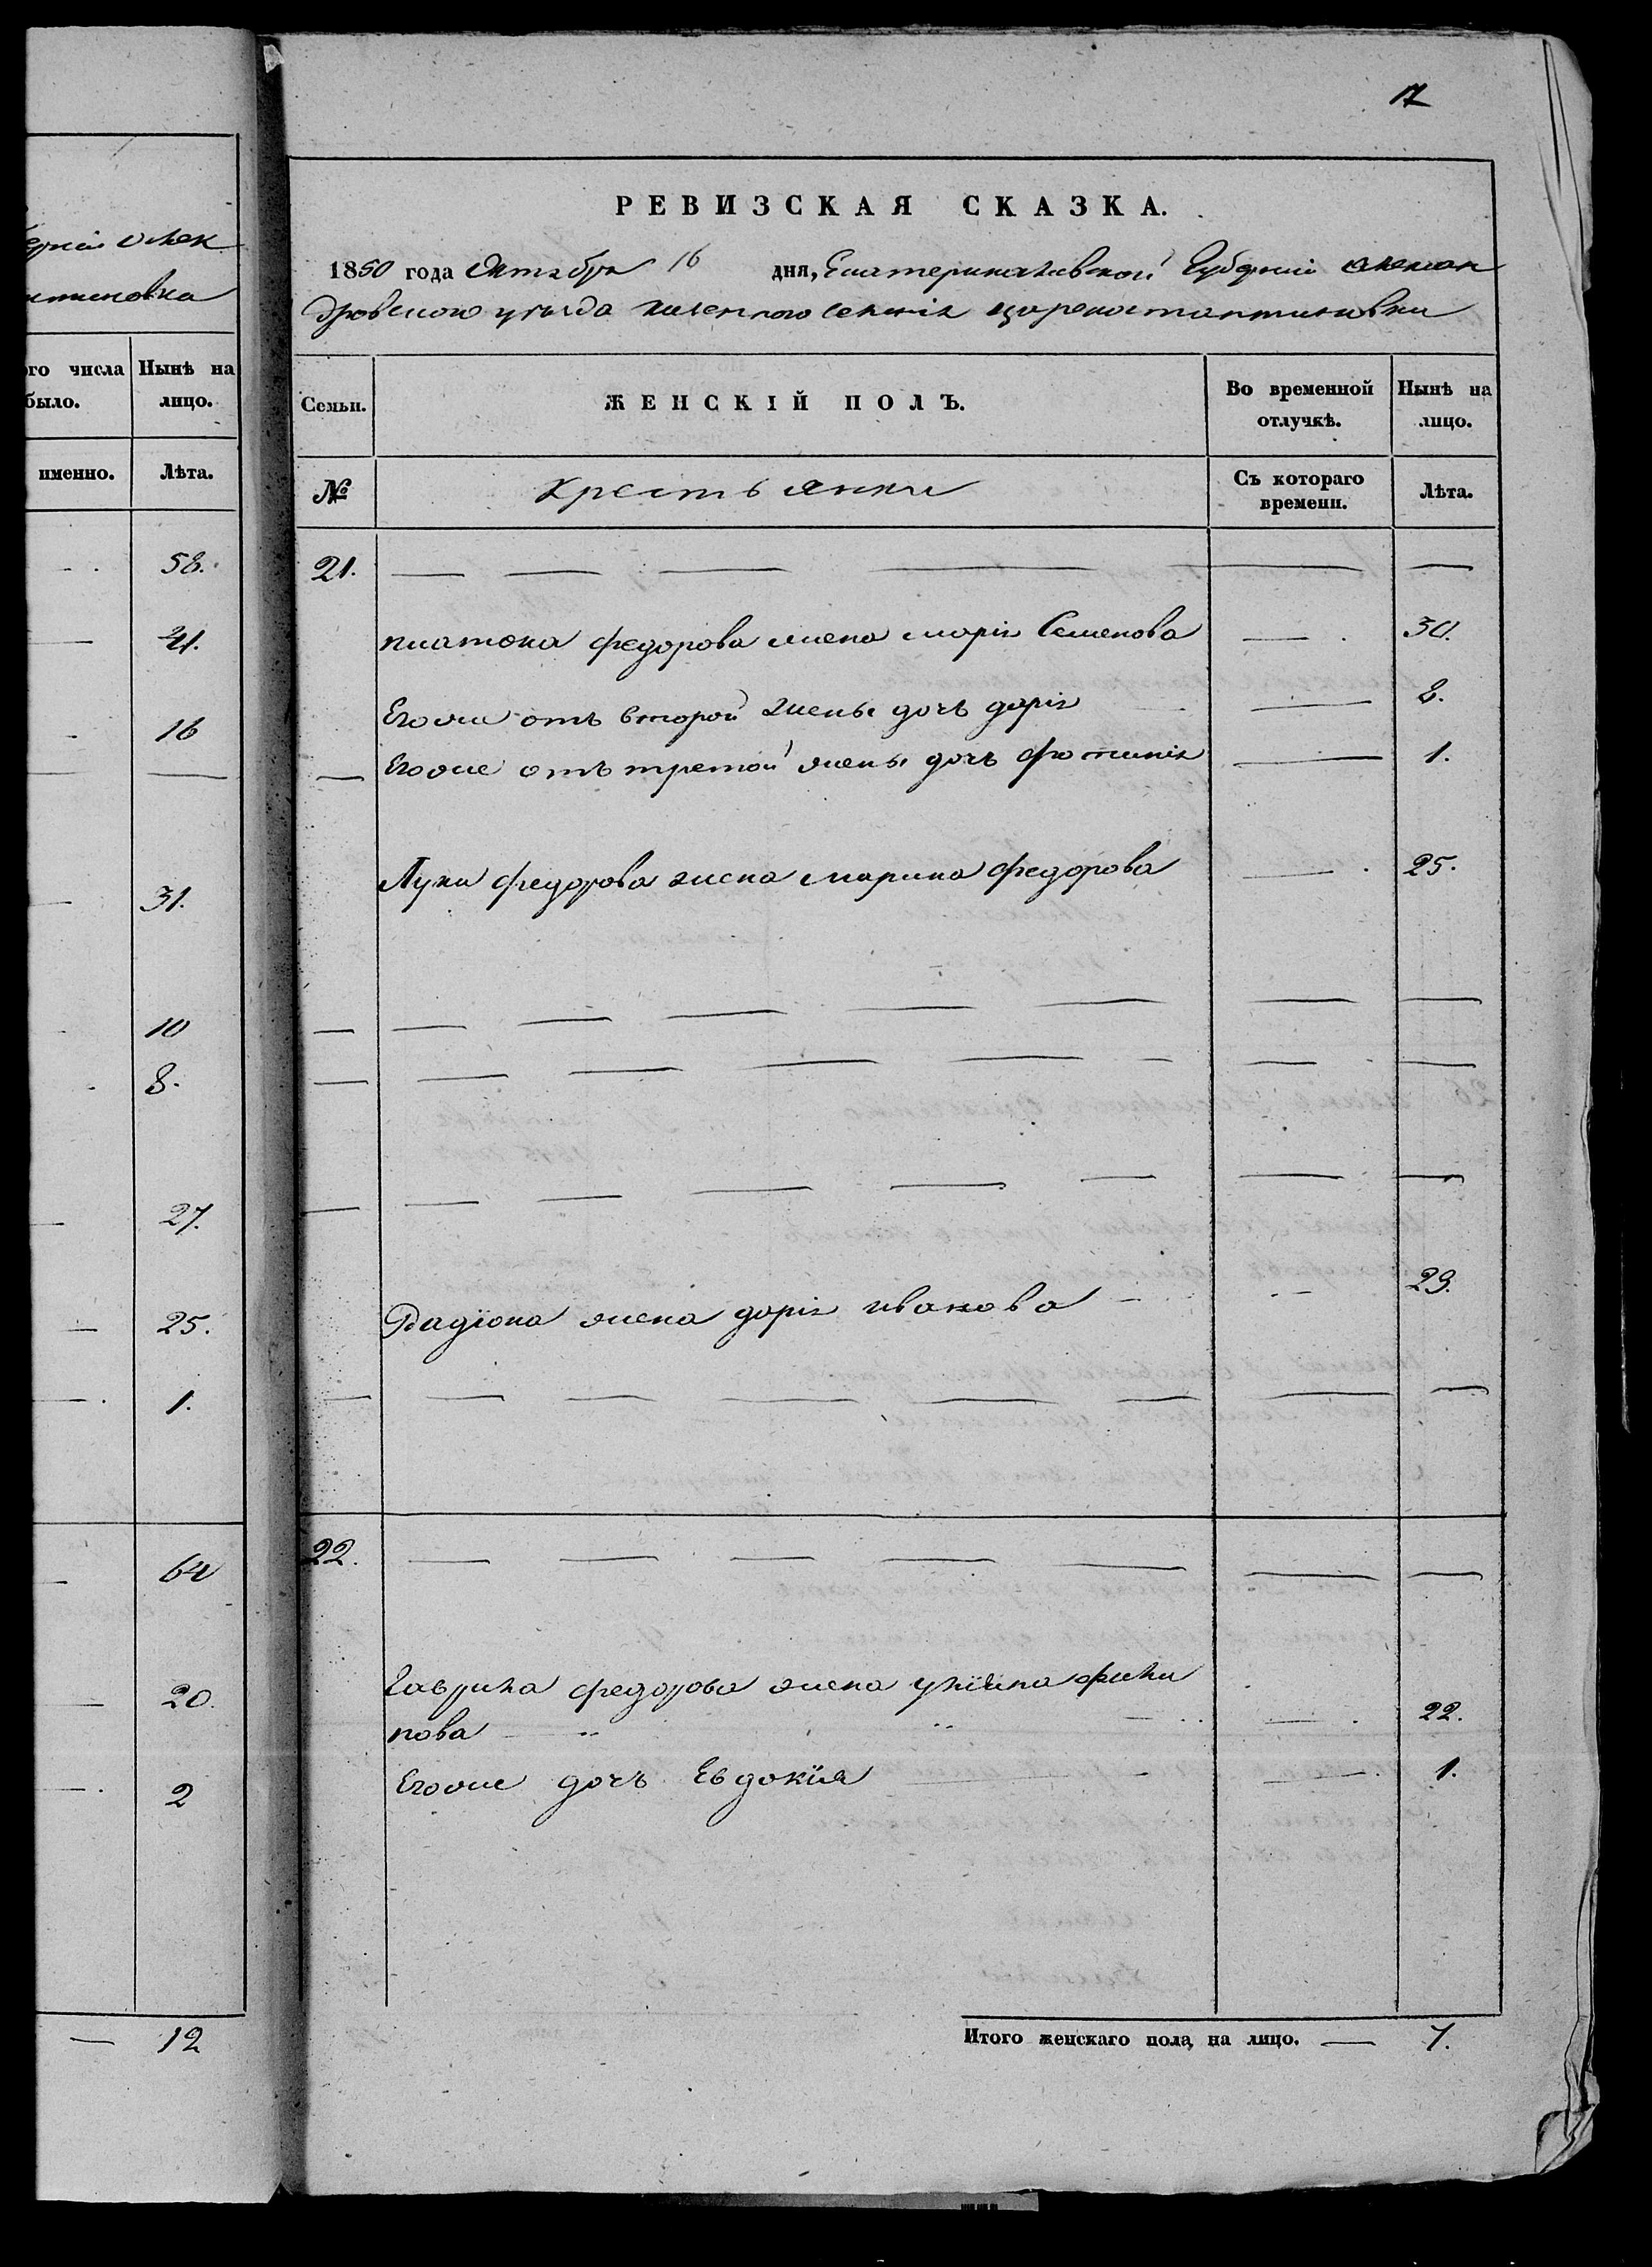 ерніи Алек
нтиновка
ого числа Нынѣ на
было. лицо.
именно. Лѣта.
58.
41.
16
31.
10
8.
27.
25.
1.
64
20.
2
12
17
РЕВИЗСКАЯ СКАЗКА.
1850 года Октября 16 дня, Екатеринославской Губерніи Алексан
дровского уѣзда казенного селенія Цареконстантиновки
Семьи. ЖЕНСКІЙ ПОЛЪ. Во временной Нынѣ на
отлучкѣ. лицо.
№ Крестьянки Съ котораго Лѣта.
времени.
21.
Платона федорова жена марія Семенова 30.
Егоже отъ второй жены дочь дарія 8.
Егоже отъ третой жены дочь фотинія 1.
Луки федорова жена марина федорова 25.
Радіона жена дарія иванова 29.
22.
Гаврила федорова жена ульяна фили
пова 22.
Егоже дочь Евдокія 1.
Итого женскаго пола на лицо. 7.